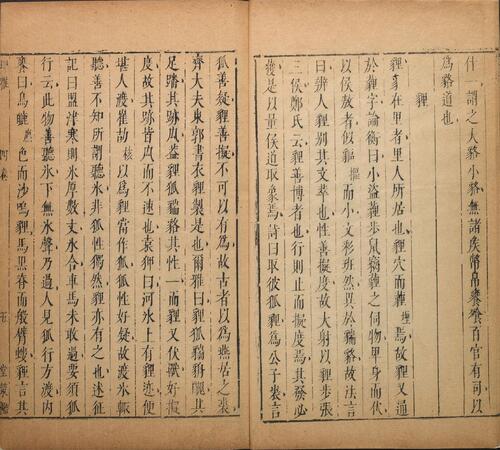 什一謂之大貉小貉無諸矦幣帛饔飱百官有司以
為貉道也
貍
貍豸在里者里人所居也貍穴而薶焉故貍又通
於薶字論衡曰小盜貍步鼠竊貍之伺物卑身而伏
以侯放者似貙而小文彩班然異於貒貉故法言
曰辨人貍別其文萃也性善擬度故大射以貍步張
三侯鄭氏云貍善博者也行則止而擬度焉其發必
獲是以量侯道取象焉詩曰取彼狐貍為公子裘言
狐善疑貍善擬不可以有為故古者以為燕居之裘
齊大夫東郭書衣貍製是也爾雅曰貍狐貒貈醜其
足蹯其跡厹葢貍狐貒貉其性一而貍又伏獸好擬
度故其跡皆厹而不速也袁狎曰河氷上有貍迹便
堪人渡崔劼以為貍當作狐狐性好疑故渡氷輒
聽善不知所謂聽氷非狐性獨然貍亦有之也述征
記曰盟津寒則氷厚數丈氷合車馬未敢過要須狐
行云此物善聽氷下無氷聲乃過人見狐行方渡内
曰鳥皫色而沙鳴貍馬黒脊而般臂螻貍言其